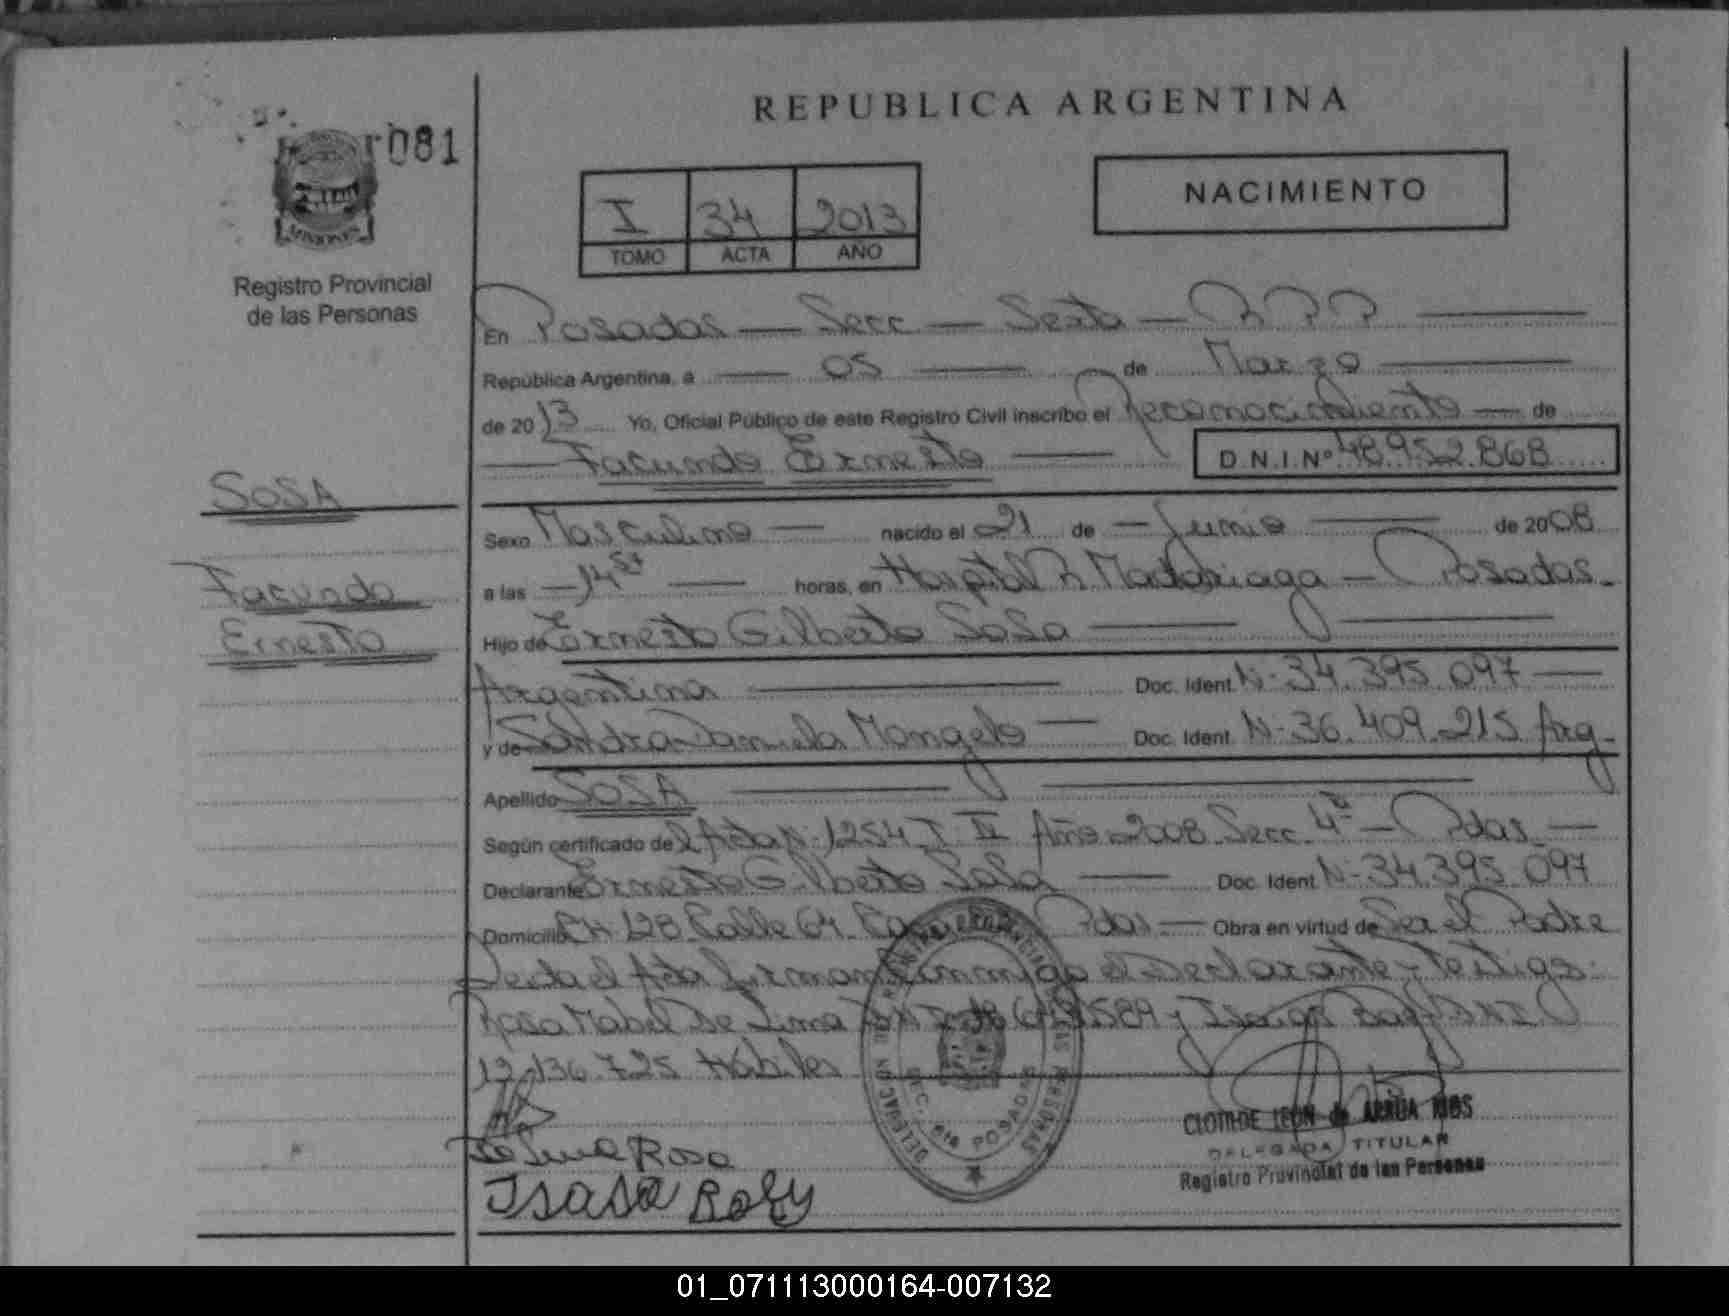 081
MISIONES
Registro Provincial
de las Personas
SOSA
Facundo
Ernesto
REPUBLICA ARGENTINA
I 34 2013
TOMO ACTA AÑO
NACIMIENTO
En Posadas — Secc — Sexta —
República Argentina, a — 05 — de Marzo —
de 2013 Yo, Oficial Público de este Registro Civil inscribo el Reconocimiento — de
— Facundo Ernesto — D.N.I.Nº 48.952.868
Sexo Masculino — nacido el 21 de — Junio — de 2008
a las — 14 — horas, en Hospital R. Madariaga — Posadas.
Hijo de Ernesto Gilberto Sosa —
Argentina — Doc. Ident. N- 34.395.097 —
y de Sandra Daniela Mongelo — Doc. Ident. N- 36.409.215 Arg.
Apellido SOSA —
Según certificado del Acta N- 1254 T- IV Año- 2008 Secc. 4ª — Pdas —
Declarante Ernesto Gilberto Sosa — Doc. Ident. N- 34.395.097
Domicilio CH 128 Calle 64 Pdas — Obra en virtud de Ser el Padre
Leida el Acta firman conmigo el Declarante y Testigo:
Rosa Mabel De Lima y
Habiles
De Lima Rosa
Isasa
SEC. 6ta POSADAS
CLOTILDE LEON de ARRUA RIOS
DELEGADA TITULAR
Registro Provincial de las Personas
01_071113000164-007132